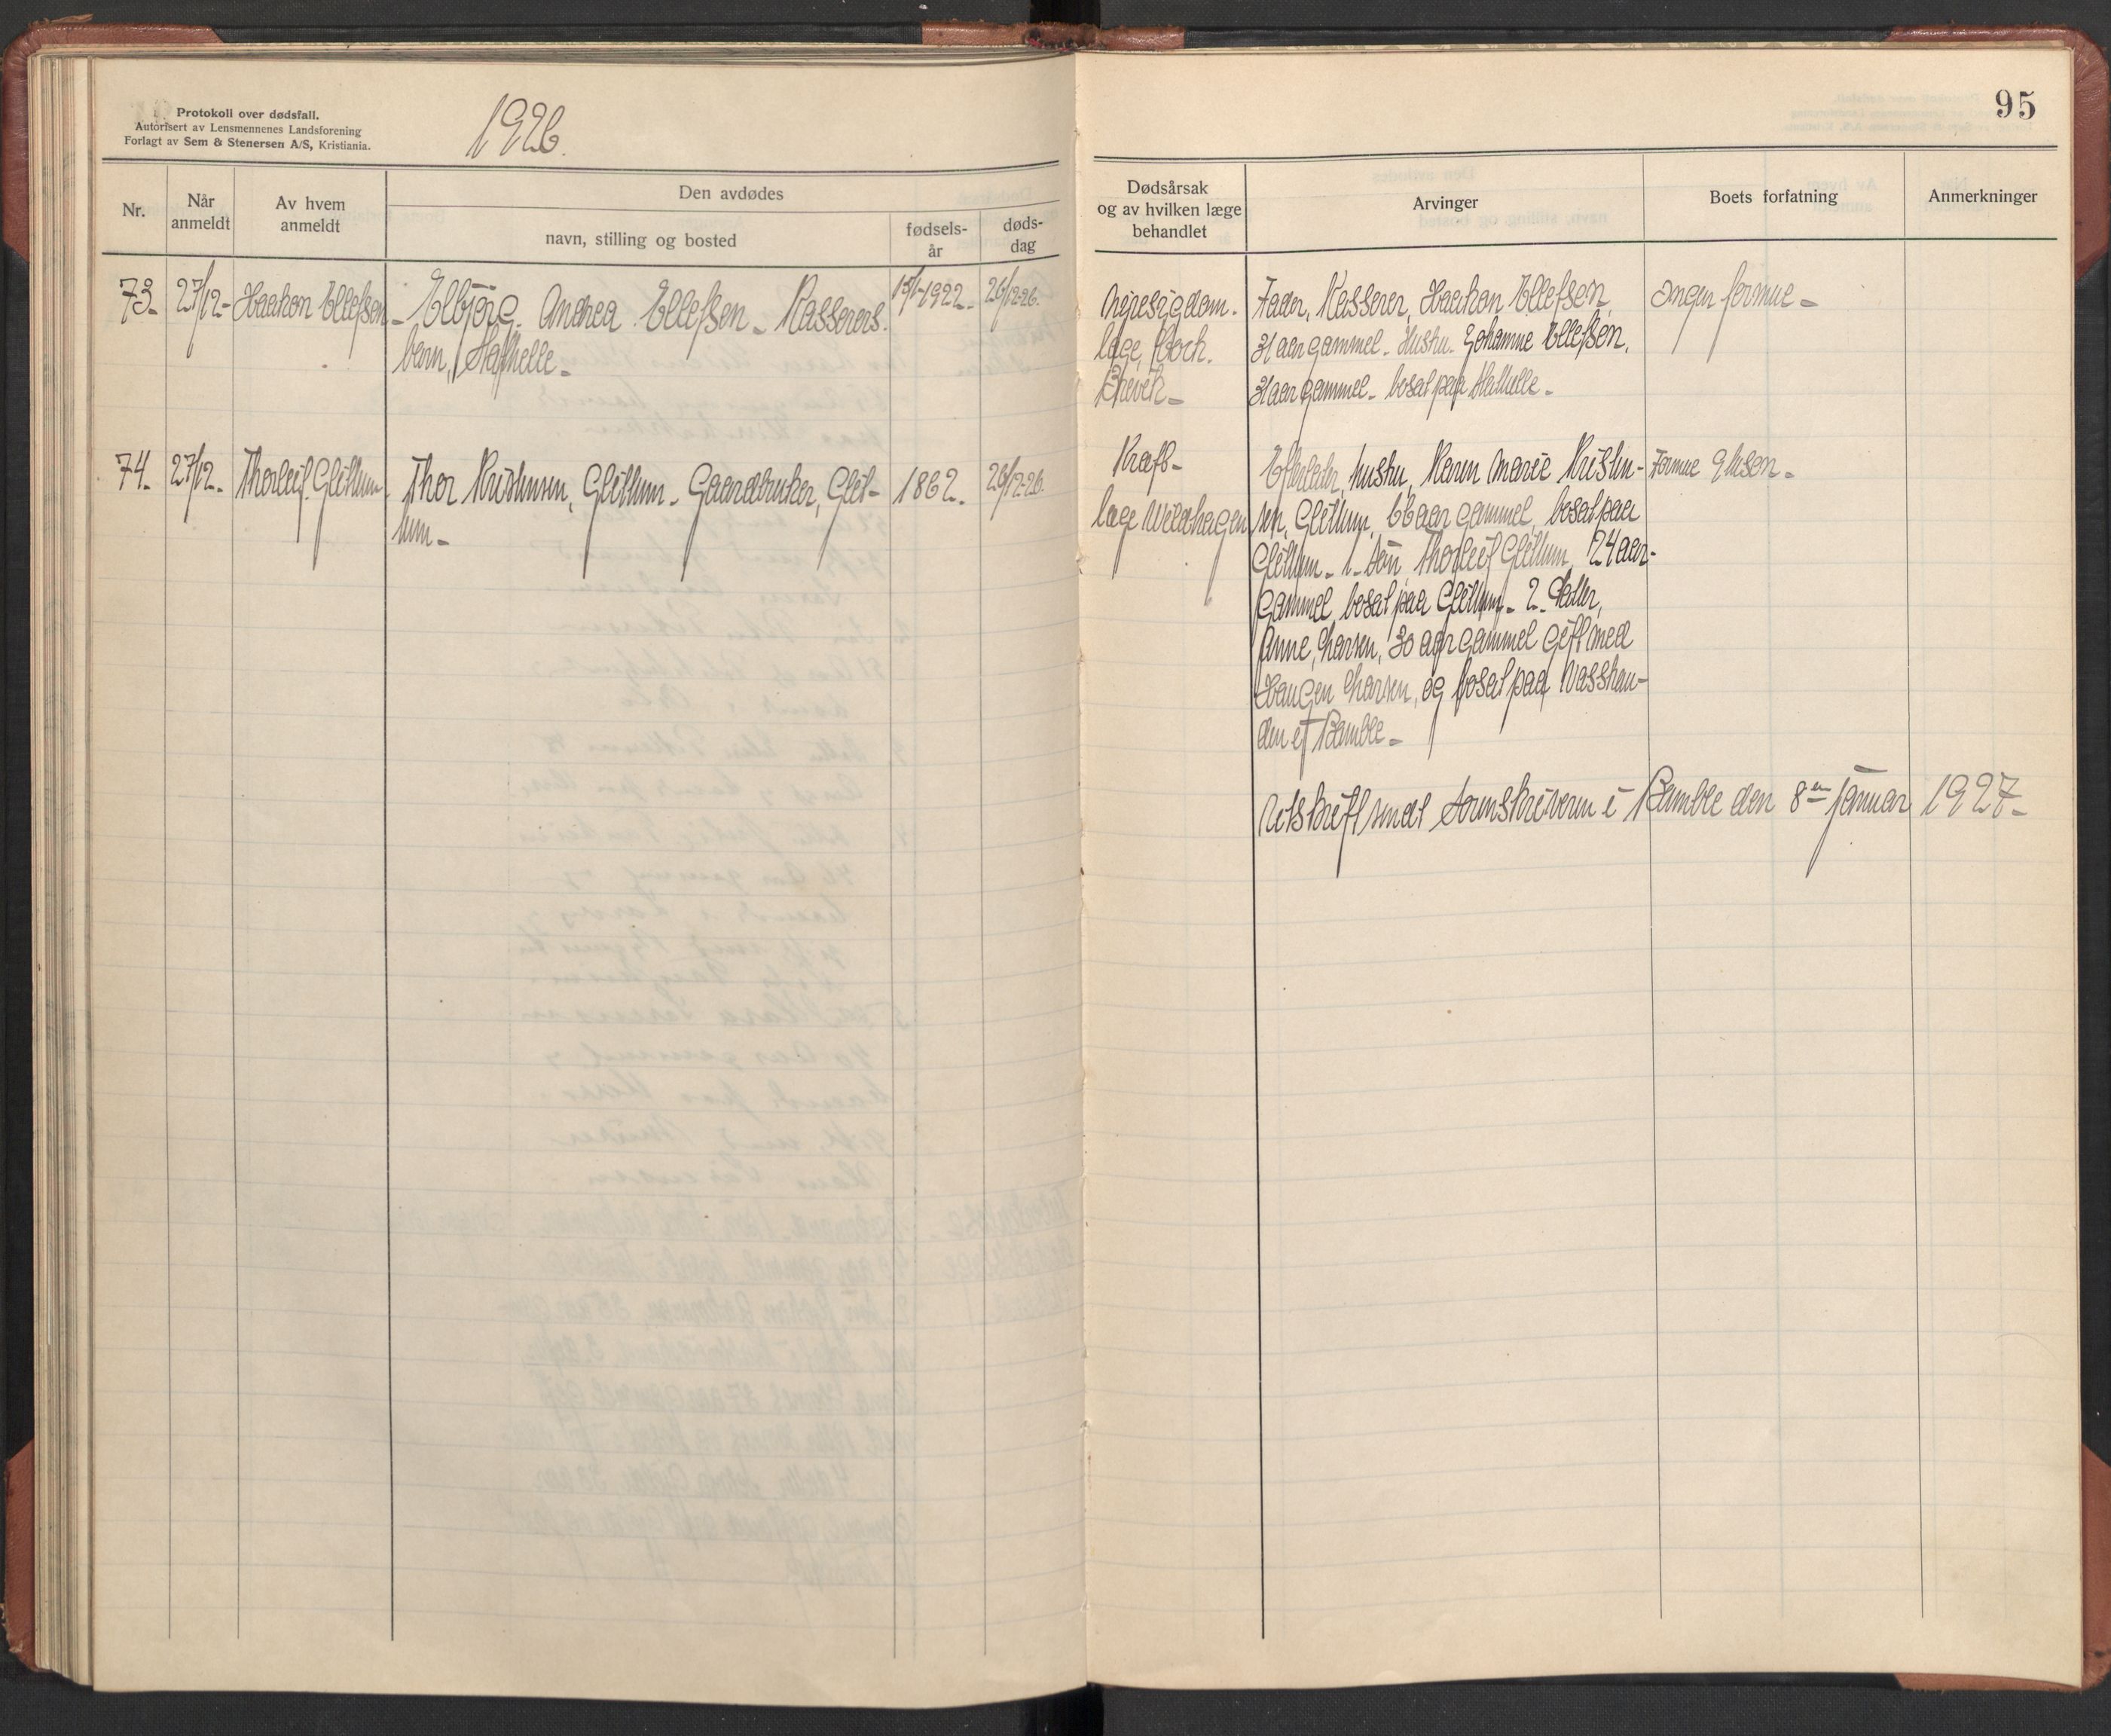 Protokoll over dødsfall.
Autorisert av Lensmennenes Landsforening
Forlagt av Sem & Stenersen A/S, Kristiania.
1926.
95
Nr.
Når anmeldt
Av hvem anmeldt
Den avdødes
navn, stilling og bosted
fødsels-år
døds-dag
Dødsårsak og av hvilken læge behandlet
Arvinger
Boets forfatning
Anmerkninger
73. 27/12- Haakon Ellefsen - Elbjørg. Andrea Ellefsen - Kasserers. 1922. 26/12-26.
barn, Stathelle -
Nyresygdom.
læge, Bock.
Brevik -
Fader, Kasserer, Haakon Ellefsen,
31 aar gammel - Hustru. Johanne Ellefsen.
31 aar gammel - bosat paa Stathelle -
Ingen formue -
74. 27/12. Thorleif Glittum. Thor Kristensen, Glittum - Gaardbruker, Glit- 1862. 26/12-26.
tum -
Kræft -
læge Weldhagen
Efterlater, hustru, Karen Marie Kristen-
sen, Glittum, 66 aar gammel, bosat paa
Glittum - 1. Søn, Thorleif Glittum, 24 aar-
gammel bosat paa Glittum - 2. Datter,
Anne, Larsen, 30 aar gammel gift med
Haugen Larsen, og bosat paa Vasshau-
den ef Bamble -
Formue
Utskrift sendt Sorenskriveren i Bamble den 8en januar 1927 -